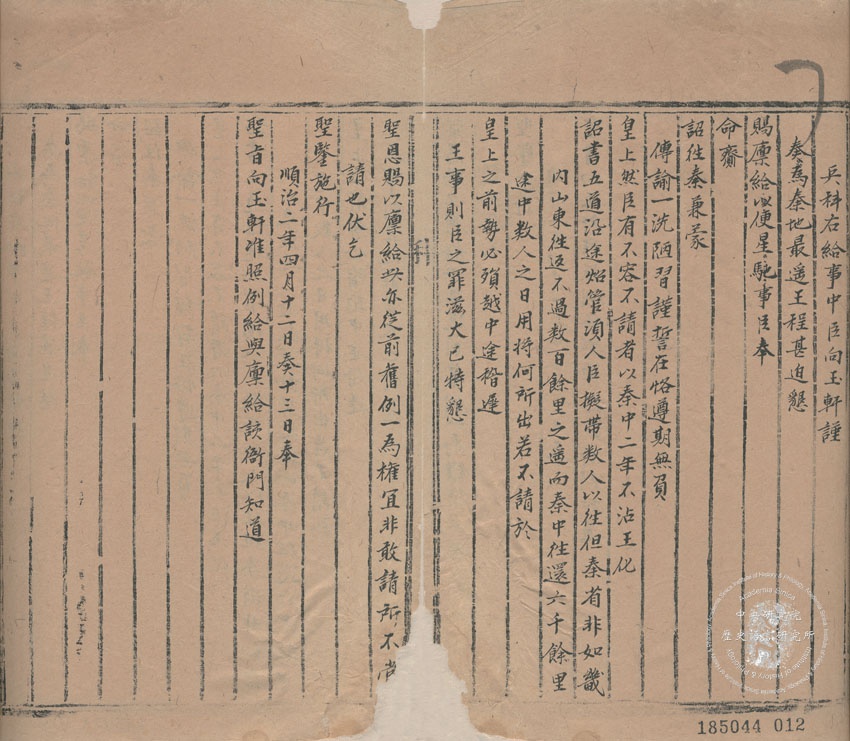 兵科右給事中臣向玉軒謹
奏為秦地最遥王程甚迫懇
賜廩給以便星馳事臣奉
命齎
詔徃秦兼蒙
傳諭一洗陋習謹誓在恪遵期無負
皇上然臣有不容不請者以秦中二年不沾王化
詔書五道沿途炤管湏人臣擬帶数人以徃但秦省非如畿
内山東徃返不過数百餘里之遥而秦中徃還六千餘里
途中数人之日用将何所出若不請於
皇上之前勢必殞越中途稽遲
王事則臣之罪滋大已特懇
聖恩賜以廩給此亦従前舊例一為權宜非敢請所不當
請也伏乞
聖鑒施行
順治二年四月十二日奏十三日奉
聖旨向玉軒准照例給與廩給該衙門知道
中央研究院
歷史語言研究所
Academia Sinica
185044 012